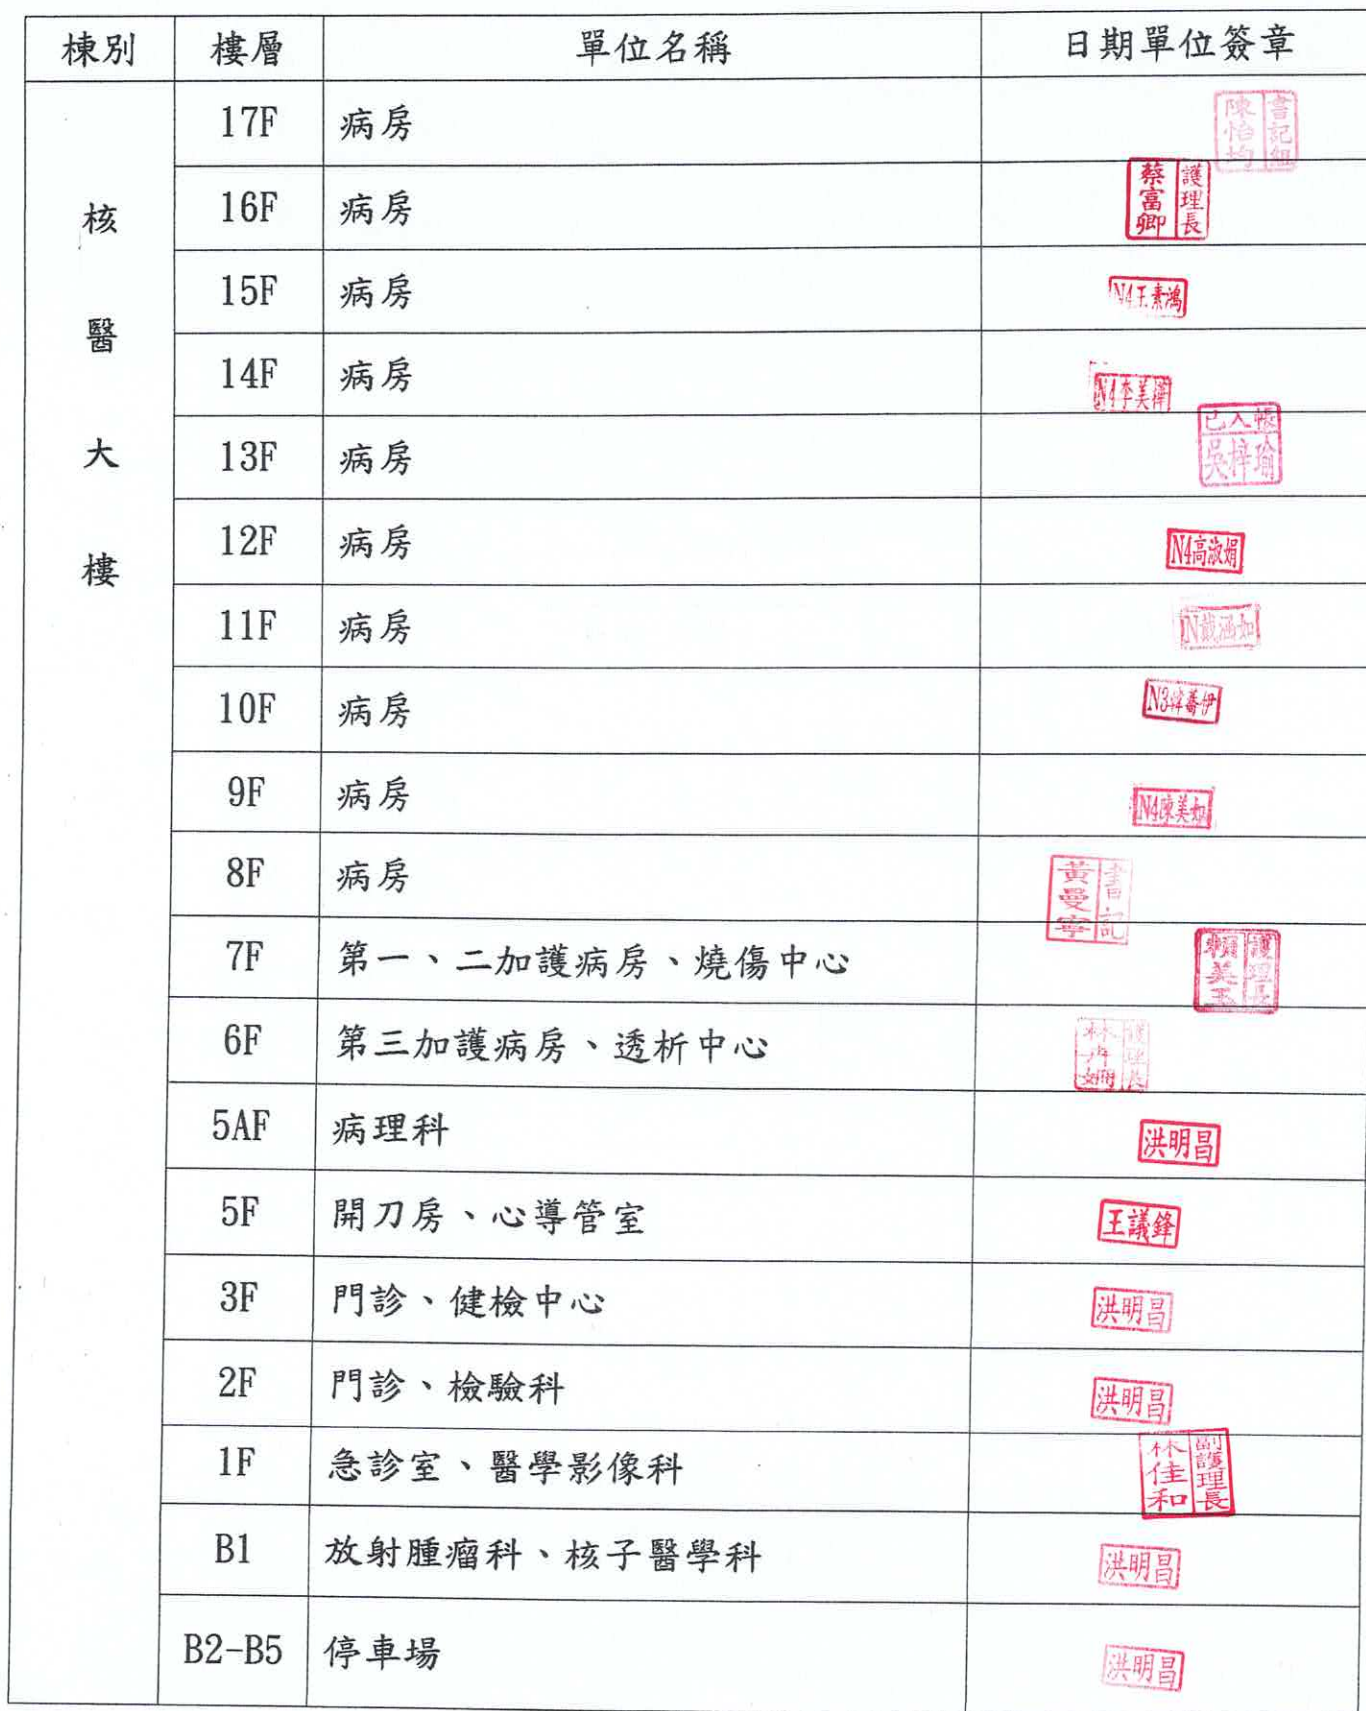 棟別 樓層 單位名稱 日期單位簽章
核醫大樓
17F 病房 書記組 陳怡均
16F 病房 護理長 蔡富卿
15F 病房 N4王素鴻
14F 病房 N4李美
13F 病房 已入帳 吳梓瑜
12F 病房 N4高淑娟
11F 病房 N戴涵如
10F 病房 N3
9F 病房 N4陳美如
8F 病房 書記 黃曼寧
7F 第一、二加護病房、燒傷中心 護理長 賴美玉
6F 第三加護病房、透析中心 護理長 林
5AF 病理科 洪明昌
5F 開刀房、心導管室 王議鋒
3F 門診、健檢中心 洪明昌
2F 門診、檢驗科 洪明昌
1F 急診室、醫學影像科 副護理長 林佳和
B1 放射腫瘤科、核子醫學科 洪明昌
B2-B5 停車場 洪明昌